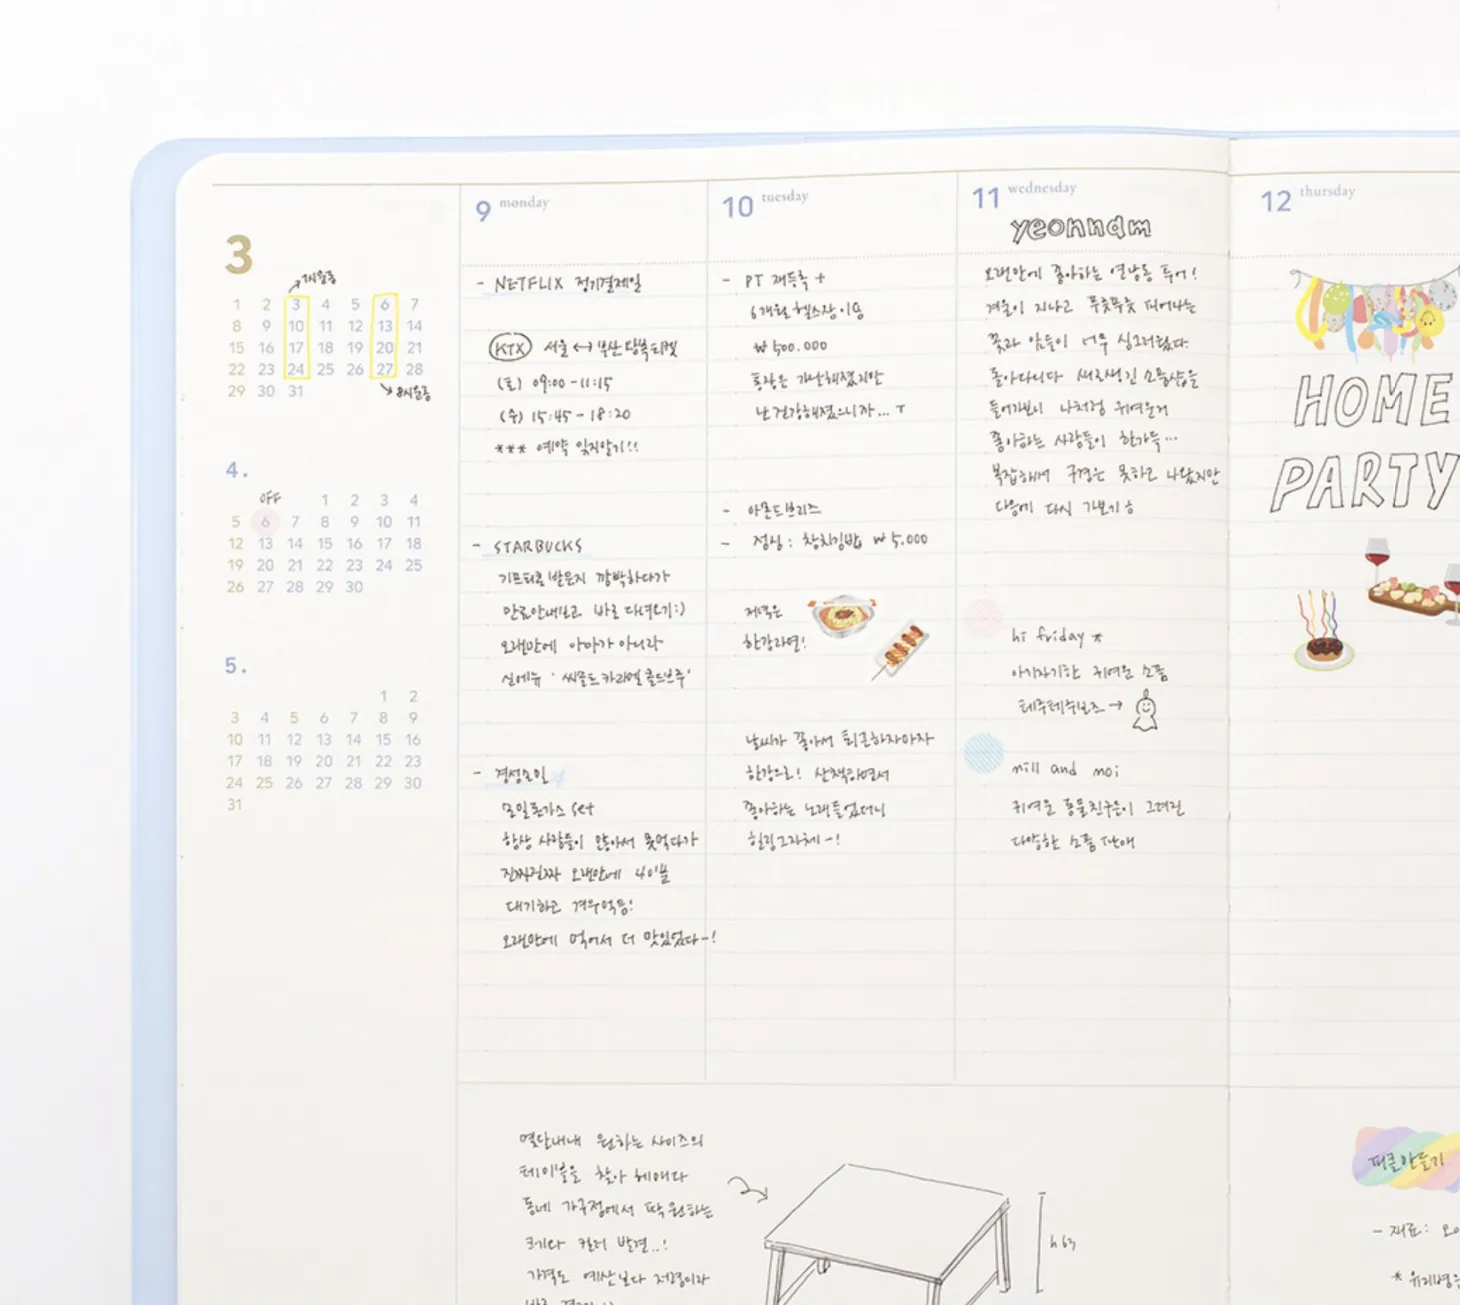 3
7시운동
1 2 3 4 5 6 7
8 9 10 11 12 13 14
15 16 17 18 19 20 21
22 23 24 25 26 27 28
29 30 31
8시운동
4.
OFF
1 2 3 4
5 6 7 8 9 10 11
12 13 14 15 16 17 18
19 20 21 22 23 24 25
26 27 28 29 30
5.
1 2
3 4 5 6 7 8 9
10 11 12 13 14 15 16
17 18 19 20 21 22 23
24 25 26 27 28 29 30
31
9 monday
- NETFLIX 정기결제일
KTX 서울 ↔ 부산 왕복티켓
(토) 09:00 - 11:15
(수) 15:45 - 18:20
*** 예약 잊지말기!!
- STARBUCKS
기프티콘 받은지 깜박하다가
만료안내보고 바로 다녀오기:)
오랜만에 아아가 아니라
신메뉴 '씨솔트 카라멜 콜드브루'
- 경성모밀
모밀돈가스 set
항상 사람들이 많아서 못먹다가
진짜진짜 오랜만에 40분
대기하고 겨우먹음!
오랜만에 먹어서 더 맛있었다~!
10 tuesday
- PT 재등록 +
6개월 헬스장이용
₩ 500.000
통장은 가난해졌지만
난 건강해졌으니까... T
- 아몬드브리즈
- 점심: 참치김밥 ₩ 5.000
저녁은
한강라면!
날씨가 좋아서 퇴근하자마자
한강으로! 산책하면서
좋아하는 노래들었더니
힐링그자체~!
11 wednesday
yeonnam
오랜만에 좋아하는 연남동 투어!
겨울이 지나고 푸릇푸릇 피어나는
꽃과 잎들이 너무 싱그러웠다.
돌아다니다 새로생긴 소품샵을
들어가보니 나처럼 귀여운거
좋아하는 사람들이 한가득...
복잡해서 구경은 못하고 나왔지만
다음에 다시 가보기!
hi friday *
아기자기한 귀여운 소품
테루테루보즈 →
mill and moi
귀여운 동물친구들이 그려진
다양한 소품 판매
12 thursday
HOME
PARTY
몇달내내 원하는 사이즈의
테이블을 찾아 헤매다
동네 가구점에서 딱 원하는
크기와 컬러 발견..!
가격도 예산보다 저렴이라
h 63
피클만들기
- 재료: 오
* 유리병은